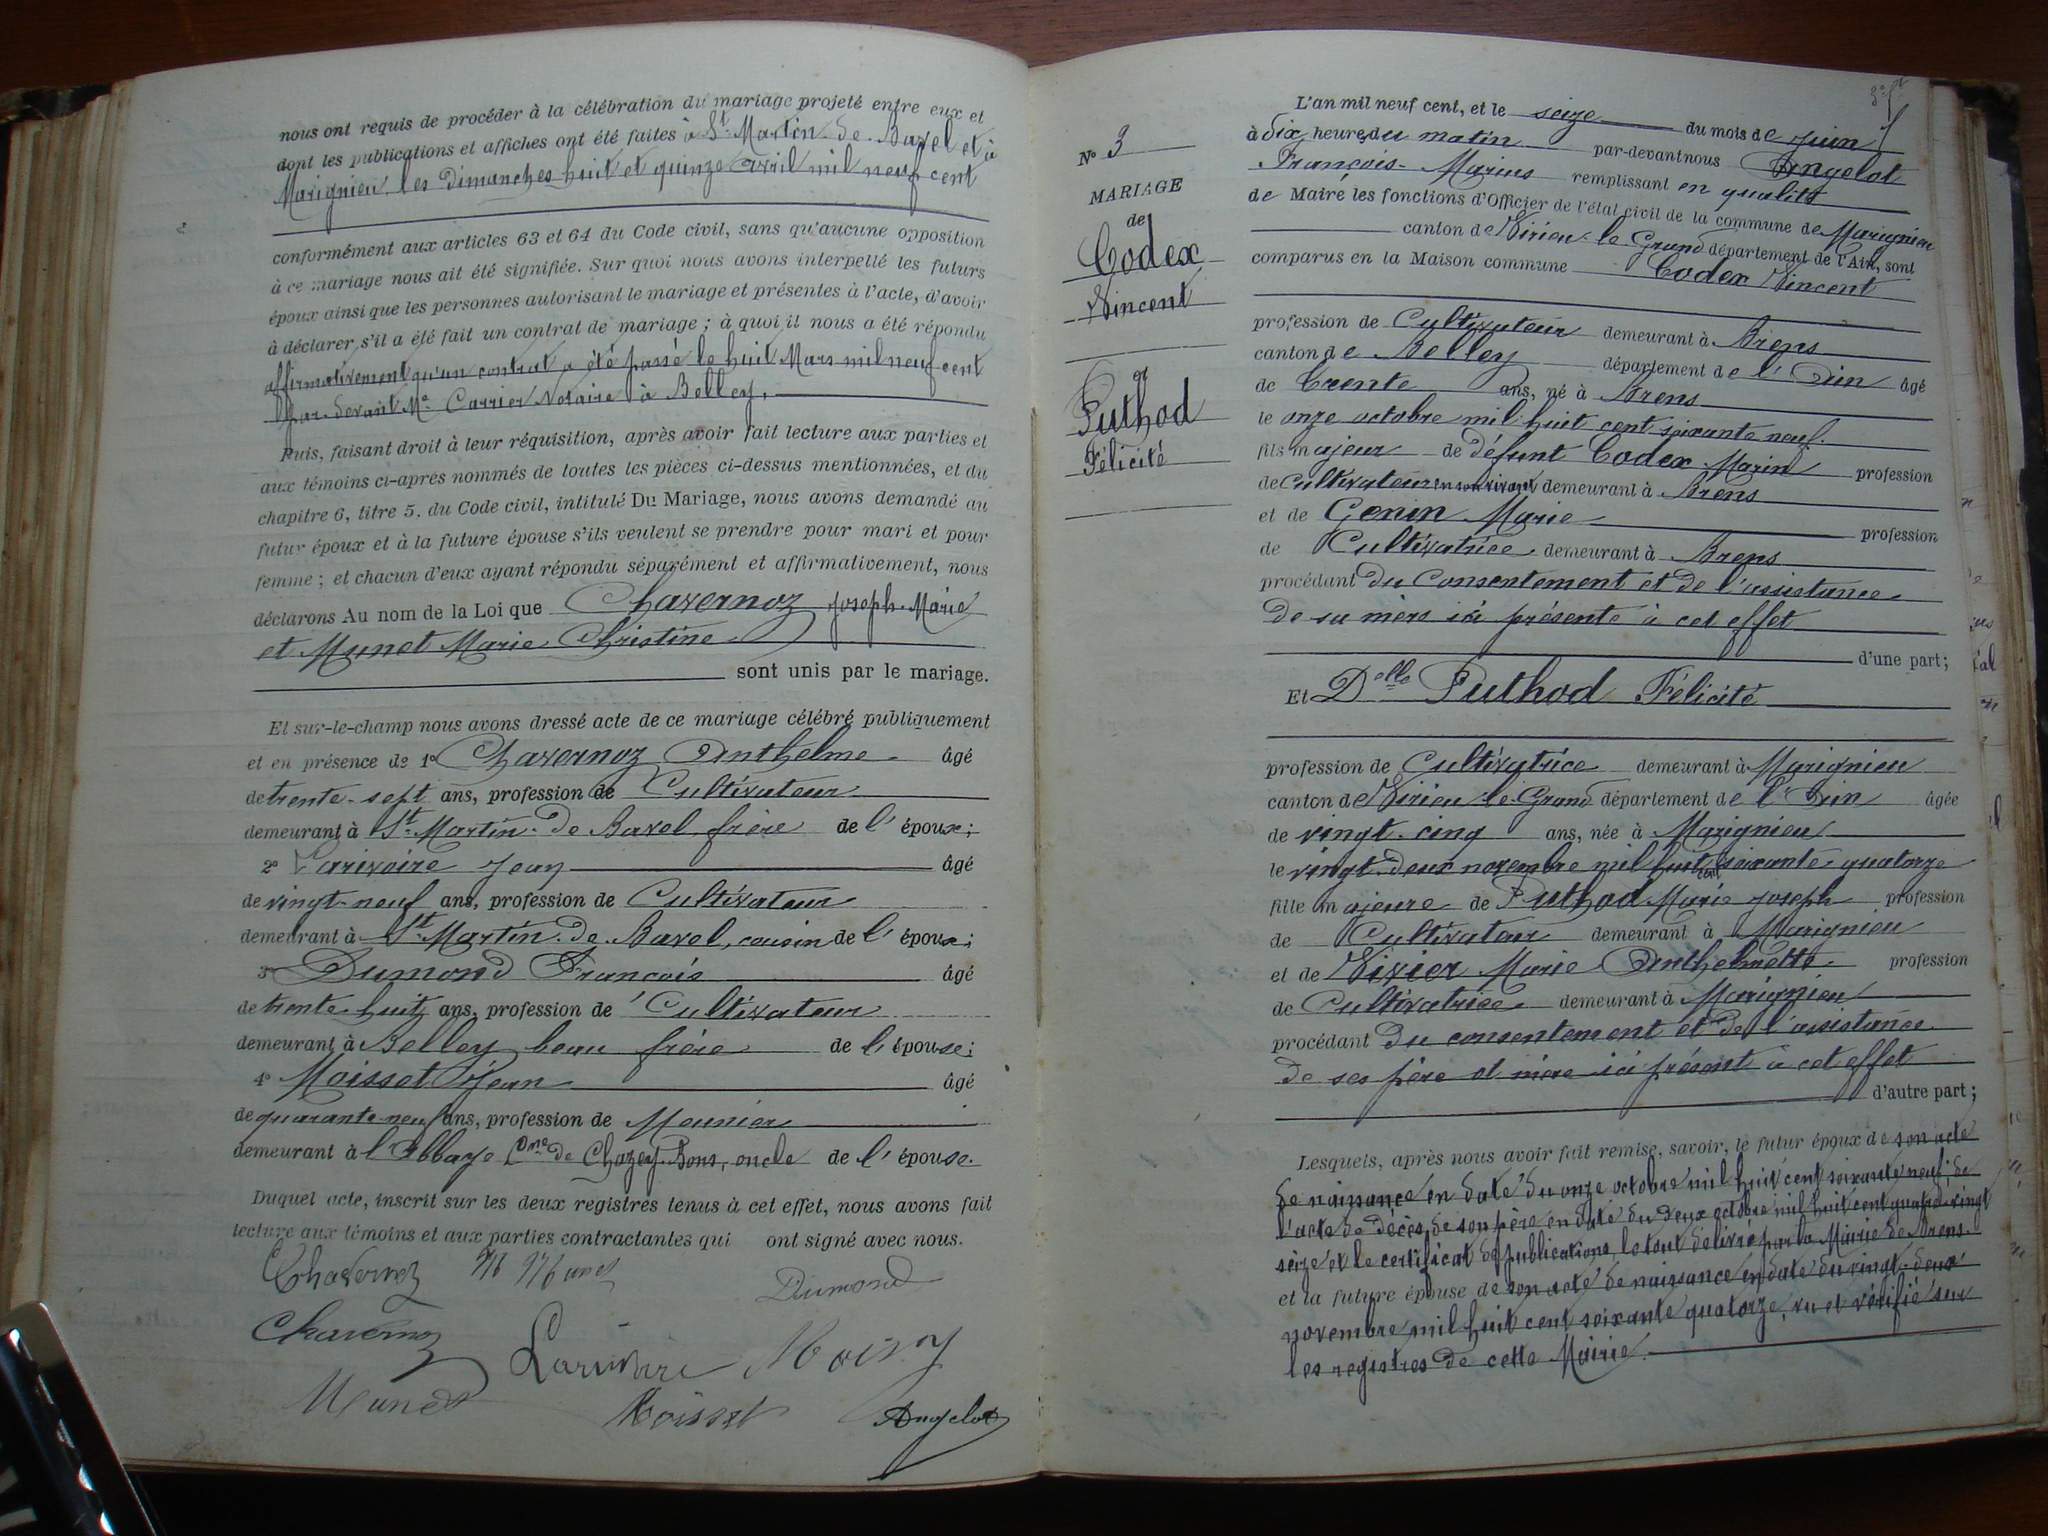 nous ont requis de procéder à la célébration du mariage projeté entre eux et
dont les publications et affiches ont été faites à St Martin de Bavel et à
Marignieu les dimanches huit et quinze avril mil neuf cent
conformément aux articles 63 et 64 du Code civil, sans qu'aucune opposition
à ce mariage nous ait été signifiée. Sur quoi nous avons interpellé les futurs
époux ainsi que les personnes autorisant le mariage et présentes à l'acte, d'avoir
à déclarer s'il a été fait un contrat de mariage ; à quoi il nous a été répondu
affirmativement qu'un contrat a été passé le huit Mars mil neuf cent
par devant Me Carrier Notaire à Belley.
Puis, faisant droit à leur réquisition, après avoir fait lecture aux parties et
aux témoins ci-après nommés de toutes les pièces ci-dessus mentionnées, et du
chapitre 6, titre 5, du Code civil, intitulé Du Mariage, nous avons demandé au
futur époux et à la future épouse s'ils veulent se prendre pour mari et pour
femme ; et chacun d'eux ayant répondu séparément et affirmativement, nous
déclarons Au nom de la Loi que Chavernoz Joseph-Marie
et Munet Marie Christine
sont unis par le mariage.
Et sur-le-champ nous avons dressé acte de ce mariage célébré publiquement
et en présence de 1° Chavernoz Anthelme âgé
de trente-sept ans, profession de Cultivateur
demeurant à St Martin-de-Bavel frère de l'époux ;
2° Larivoire Jean âgé
de vingt-neuf ans, profession de Cultivateur
demeurant à St Martin-de-Bavel, cousin de l'époux ;
3° Dumond François âgé
de trente-huit ans, profession de Cultivateur
demeurant à Belley beau frère de l'épouse ;
4° Moisset Jean âgé
de quarante-neuf ans, profession de Meunier
demeurant à l'Abbaye Cne de Chazey-Bons, oncle de l'épouse.
Duquel acte, inscrit sur les deux registres tenus à cet effet, nous avons fait
lecture aux témoins et aux parties contractantes qui ont signé avec nous.
Chavernoz Munet Dumond
Chavernoz Larivoire
Munet Moisset Angelot
N° 3
MARIAGE
de
Codex
Vincent
et
Puthod
Félicité
L'an mil neuf cent, et le seize du mois de Juin
à dix heures du matin par-devant nous Angelot
François-Marius remplissant en qualité
de Maire les fonctions d'Officier de l'état civil de la commune de Marignieu
canton de Virieu-le-Grand département de l'Ain, sont
comparus en la Maison commune Codex Vincent
profession de Cultivateur demeurant à Brens
canton de Belley département de l'Ain âgé
de trente ans, né à Brens
le onze octobre mil huit cent soixante neuf
fils majeur de défunt Codex Marin profession
de Cultivateur en son vivant demeurant à Brens
et de Genin Marie profession
de Cultivatrice demeurant à Brens
procédant du consentement et de l'assistance
de sa mère ici présente à cet effet
d'une part ;
Et Delle Puthod Félicité
profession de Cultivatrice demeurant à Marignieu
canton de Virieu-le-Grand département de l'Ain âgée
de vingt-cinq ans, née à Marignieu
le vingt-deux novembre mil huit cent soixante-quatorze
fille majeure de Puthod Marie Joseph profession
de Cultivateur demeurant à Marignieu
et de Vivier Marie Anthelmette profession
de Cultivatrice demeurant à Marignieu
procédant du consentement et de l'assistance
de ses père et mère ici présent à cet effet
d'autre part ;
Lesquels, après nous avoir fait remise, savoir, le futur époux de son acte
de naissance en date du onze octobre mil huit cent soixante neuf ; de
l'acte de décès de son père en date du deux octobre mil huit cent quatre-vingt
seize et le certificat de publications, le tout délivré par la Mairie de Brens.
et la future épouse de son acte de naissance en date du vingt-deux
novembre mil huit cent soixante quatorze, vu et vérifié sur
les registres de cette Mairie.